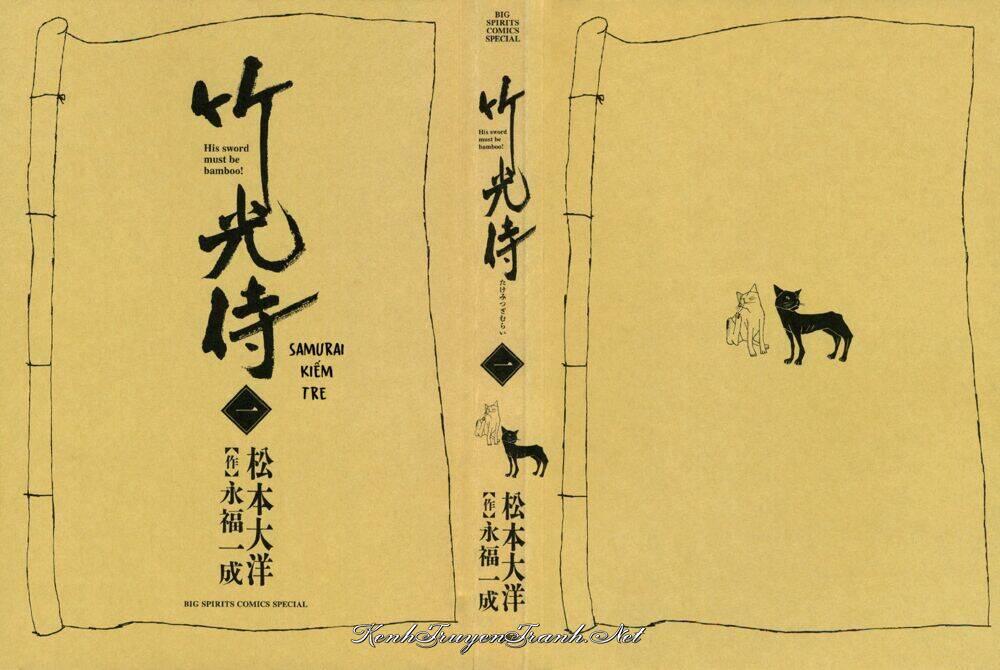 竹光侍
His sword
must be
bamboo!
SAMURAI
KIẾM
TRE
一
松本大洋
【作】永福一成
BIG SPIRITS COMICS SPECIAL
BIG
SPIRITS
COMICS
SPECIAL
竹光侍
His sword
must be
bamboo!
たけみつざむらい
一
松本大洋
【作】永福一成
KenhTruyenTranh.Net